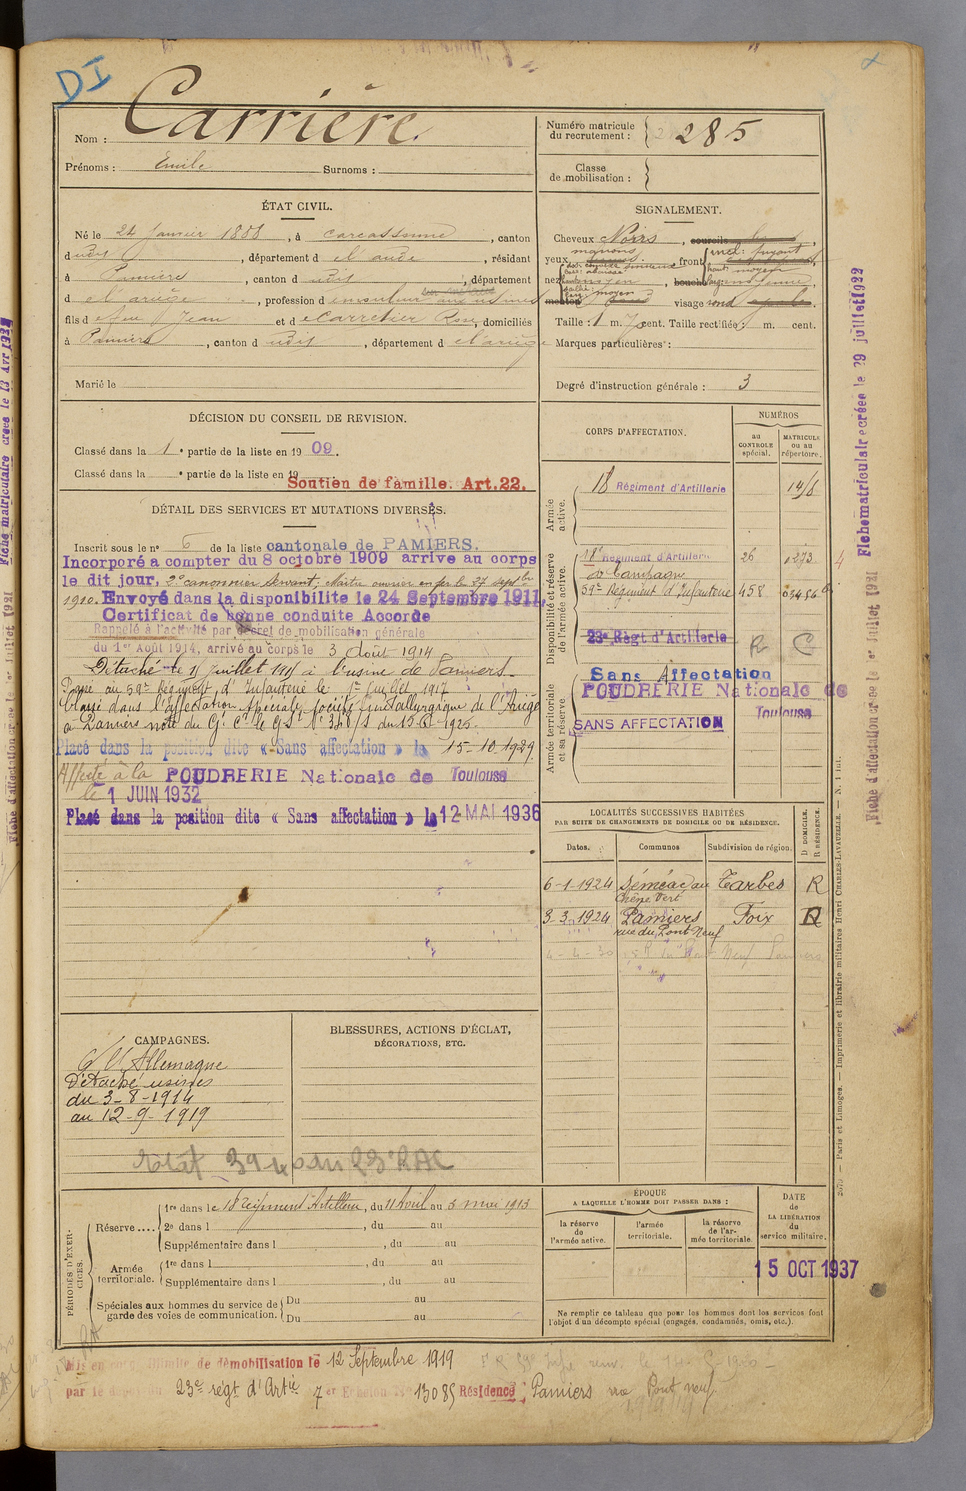 DI
Nom : Carrière
Prénoms : Emile Surnoms :
Numéro matricule du recrutement : 285
Classe de mobilisation :
ÉTAT CIVIL.
Né le 24 Janvier 1888, à Carcassonne, canton
dudit, département de l'Aude, résidant
à Pamiers, canton dudit, département
de l'Ariège, profession d'émouleur aux usines
fils de feu Jean et de Carretier Rose, domiciliés
à Pamiers, canton dudit, département de l'Ariège
Marié le
SIGNALEMENT.
Cheveux Noirs, sourcils
yeux marrons front incl: fuyant haut: moyen
nez moyen, bouche moyenne,
menton visage rond ovale.
Taille : 1 m. 7 cent. Taille rectifiée : m. cent.
Marques particulières :
Degré d'instruction générale : 3
DÉCISION DU CONSEIL DE REVISION.
Classé dans la 1e partie de la liste en 1909.
Classé dans la e partie de la liste en 19
Soutien de famille. Art.22.
DÉTAIL DES SERVICES ET MUTATIONS DIVERSES.
Inscrit sous le n° 6 de la liste cantonale de PAMIERS.
Incorporé à compter du 8 octobre 1909 arrivé au corps
le dit jour, 2e canonnier servant; Maître ouvrier en fer le 27 septbre
1910. Envoyé dans la disponibilité le 24 Septembre 1911.
Certificat de bonne conduite Accordé
Rappelé à l'activité par décret de mobilisation générale
du 1er Août 1914, arrivé au corps le 3 Août 1914
Détaché le 15 Juillet 1915 à l'usine de Pamiers.
Passé au 59e Régiment d'Infanterie le 1er Juillet 1917
Classé dans l'affectation spéciale Société métallurgique de l'Ariège
à Pamiers
Placé dans la position dite « Sans affectation » le 15-10-1929.
Affecté à la POUDRERIE Nationale de Toulouse
le 1 JUIN 1932
Placé dans la position dite « Sans affectation » le 12 MAI 1936
CORPS D'AFFECTATION.
NUMÉROS
au CONTROLE spécial.
MATRICULE ou au répertoire.
Armée active.
18 Régiment d'Artillerie
Disponibilité et réserve de l'armée active.
18e Régiment d'Artillerie 26 1273
de Campagne
59e Régiment d'Infanterie 458
23e Règt d'Artillerie
R C
Armée territoriale et sa réserve
Sans Affectation
POUDRERIE Nationale de Toulouse
SANS AFFECTATION
LOCALITÉS SUCCESSIVES HABITÉES
PAR SUITE DE CHANGEMENTS DE DOMICILE OU DE RÉSIDENCE.
Dates. Communes Subdivision de région. D DOMICILE. R RÉSIDENCE.
6-1-1924 Séméac au Chêne Vert Tarbes R
3-3-1924 Pamiers rue du Pont Neuf Foix R
4-4-30 Pont Neuf Pamiers
CAMPAGNES.
C/ Allemagne
Détaché usines
du 3-8-1914
au 12-9-1919
BLESSURES, ACTIONS D'ÉCLAT,
DÉCORATIONS, ETC.
PÉRIODES D'EXERCICES.
Réserve....
1re dans le 18 Régiment d'Artillerie, du 11 Avril au 3 mai 1913
2e dans l , du au
Supplémentaire dans l , du au
Armée territoriale.
1re dans l , du au
Supplémentaire dans l , du au
Spéciales aux hommes du service de garde des voies de communication.
Du au
Du au
ÉPOQUE
A LAQUELLE L'HOMME DOIT PASSER DANS :
la réserve de l'armée active.
l'armée territoriale.
la réserve de l'armée territoriale.
DATE DE LA LIBÉRATION du service militaire.
15 OCT 1937
Ne remplir ce tableau que pour les hommes dont les services font
l'objet d'un décompte spécial (engagés, condamnés, omis, etc.).
Mis en congé illimité de démobilisation le 12 Septembre 1919
par le dépôt du 23e régt d'Artie 7er Echelon No 13085 Résidence : Pamiers rue Pont neuf
Fiche matriculaire créée le 29 juillet 1922
Fiche d'affectation créée le 1er Juillet 1921
Paris et Limoges. — Imprimerie et librairie militaires Henri CHARLES-LAVAUZELLE. — N. 1 int.
Fiche matriculaire créée le 13 Avr 193
Fiche d'affectation créée le 1er Juillet 1921